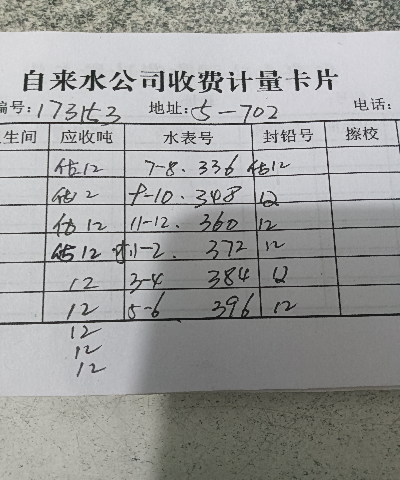 自来水公司收费计量卡片
编号: 173153 地址: 5-702 电话:
生间 应收吨 水表号 封铅号 擦校
估12 7-8. 336 估12
估12 9-10. 348 12
估12 11-12. 360 12
估12 11-2. 372 12
12 3-4 384 12
12 5-6 396 12
12
12
12